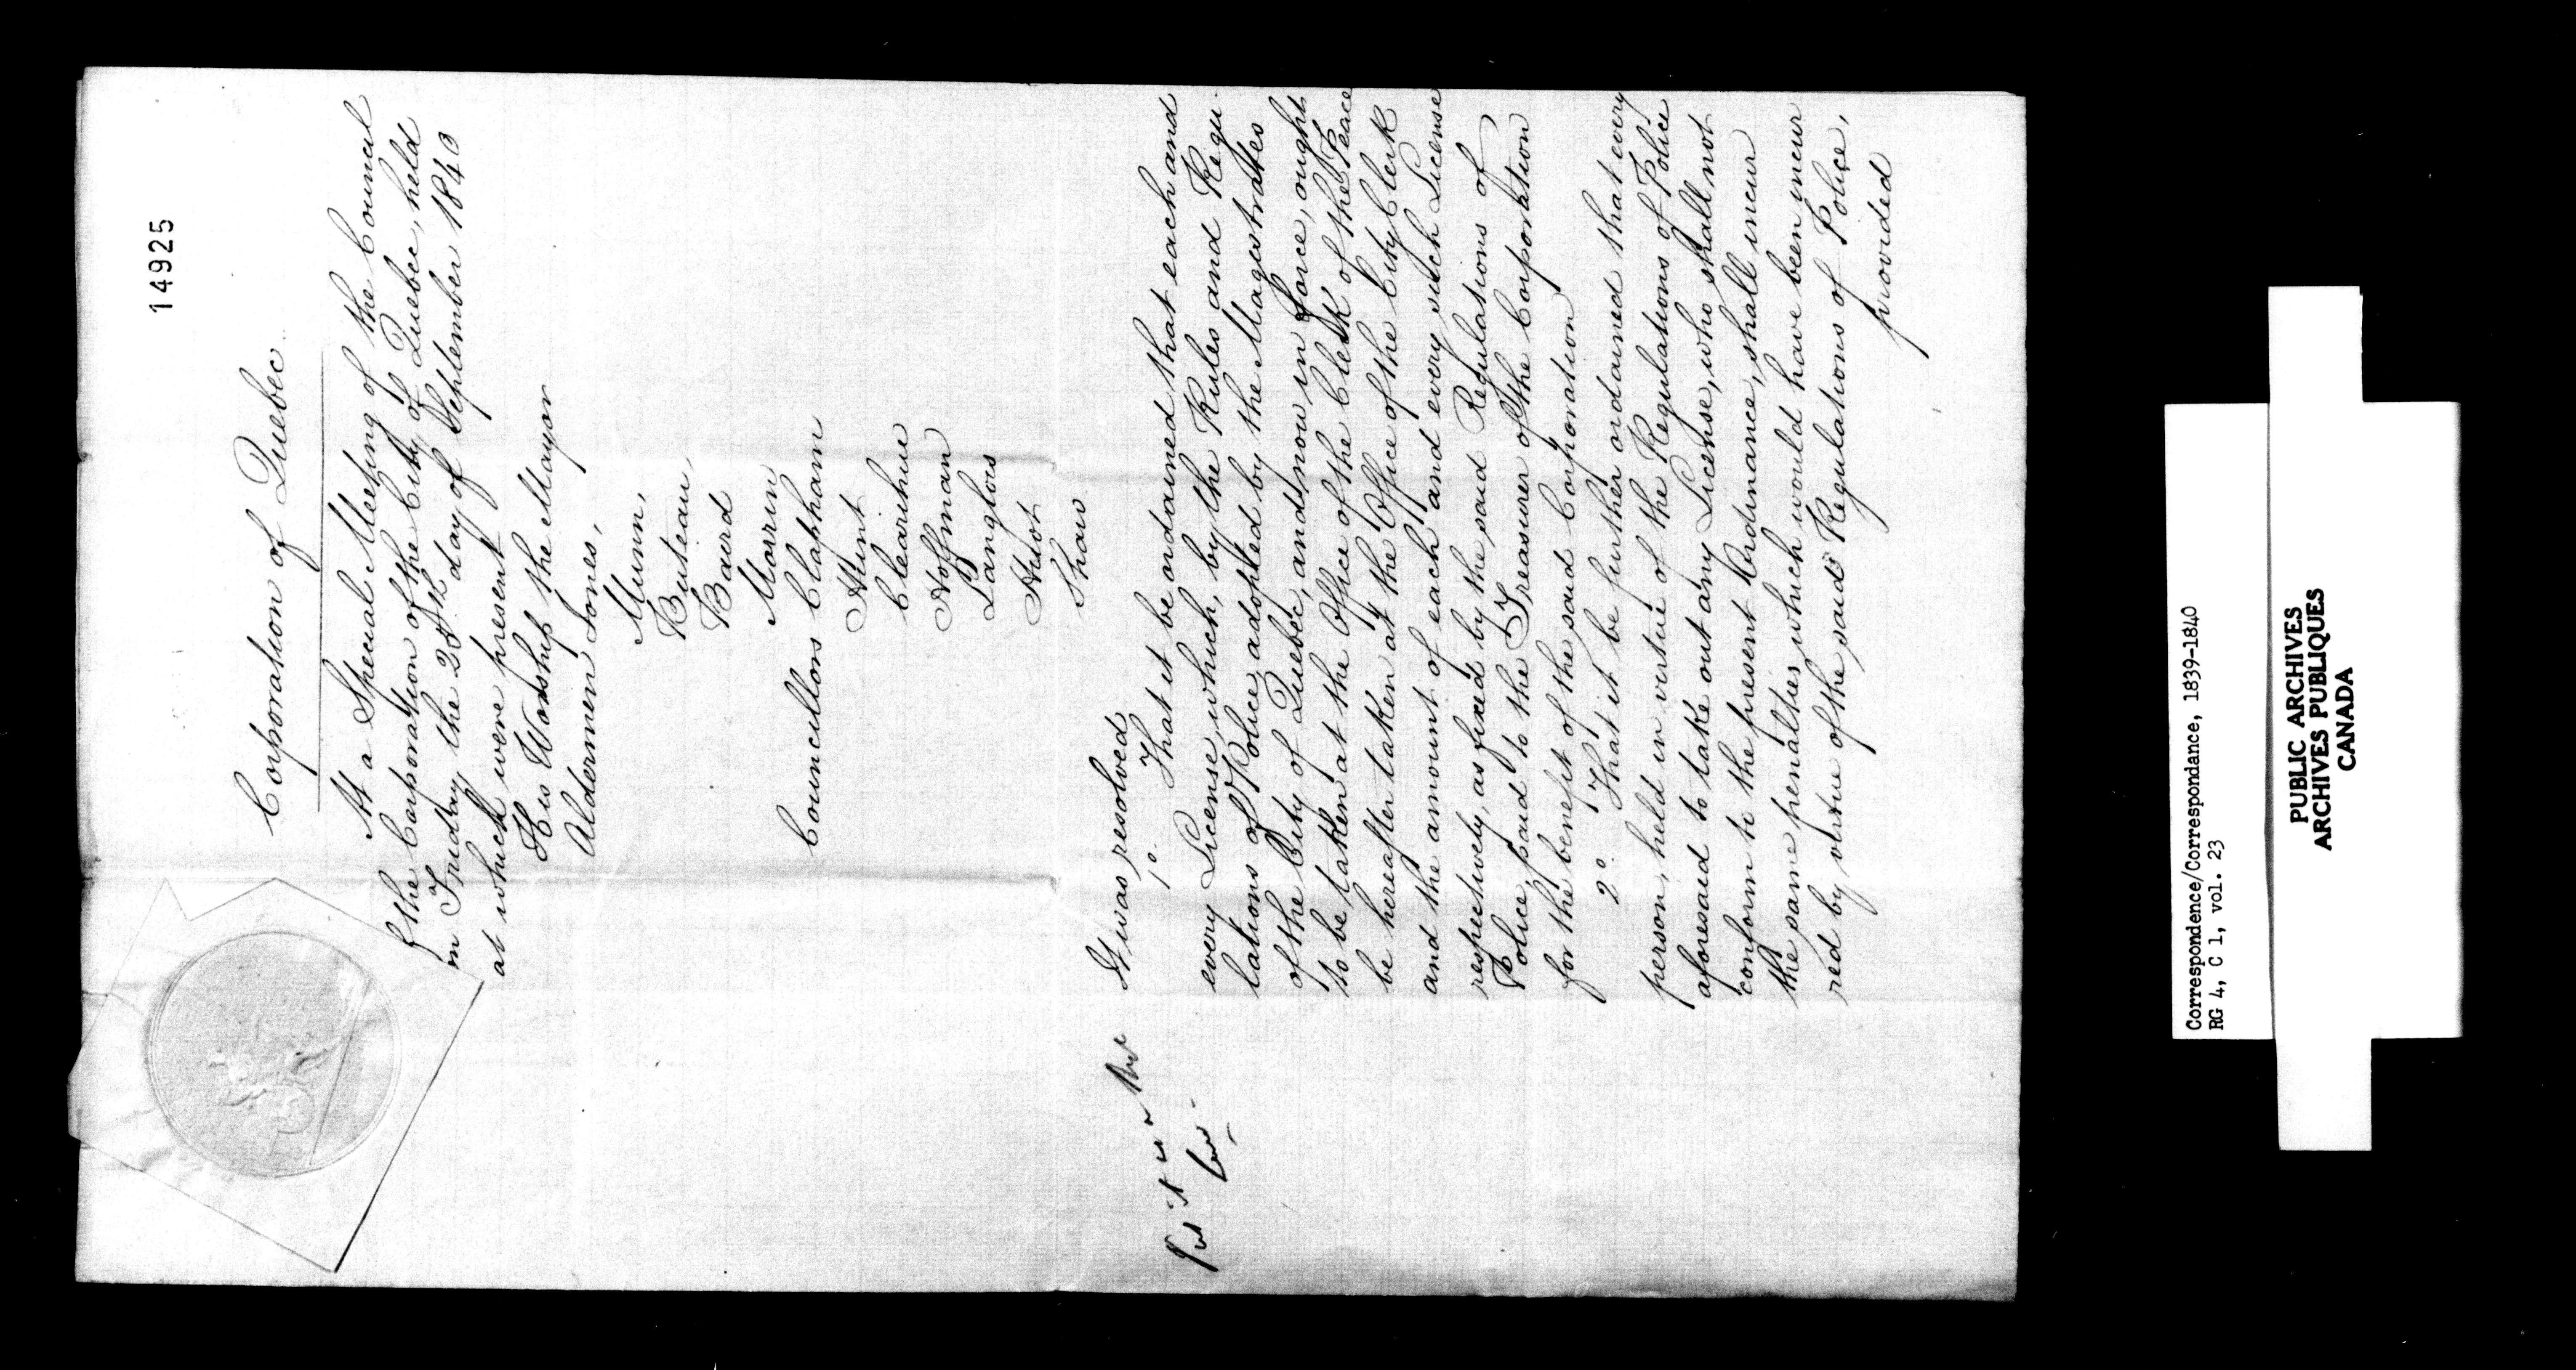 14925
Corporation of Quebec
At a Special Meeting of the Council
of the Corporation of the City of Quebec, held
on Friday the 25th day of September 1840
at which were present
His Worship the Mayor
Aldermen Jones,
Munn,
Buteau,
Baird
Morrin
Councillors Clapham
Hunt
Clearihue
Hoffman
Langlois
Hulot
Shaw
It was resolved
1o. That it be ordained that each and
every License which, by the Rules and Regu-
lations of Police, adopted by the Magistrates
of the City of Quebec, and now in force, ought
to be taken at the Office of the Clerk of the Peace
be hereafter taken at the Office of the City Clerk
and the amount of each and every such License
respectively, as fixed by the said Regulations of
Police, paid to the Treasurer of the Corporation
for the benefit of the said Corporation
2o. That it be further ordained that every
person, held in virtue of the Regulations of Police
aforesaid to take out any License, who shall not
conform to the present Ordinance, shall incur
the same penalties which would have been incur
red by virtue of the said Regulations of Police,
provided
Correspondence/Correspondance, 1839-1840
RG 4, C 1, vol. 23
PUBLIC ARCHIVES
ARCHIVES PUBLIQUES
CANADA